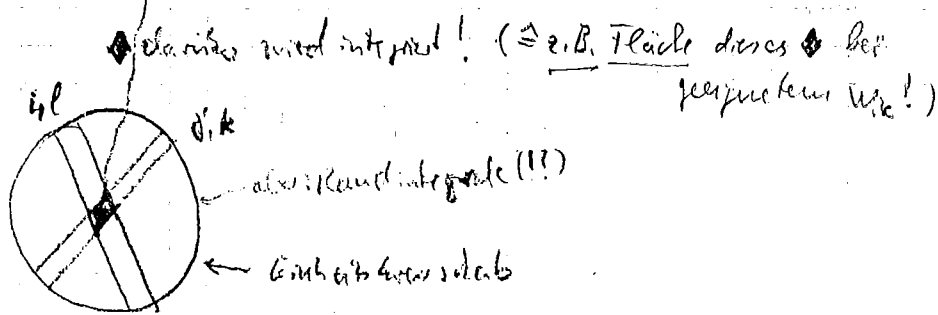 ♦ darüber wird integriert! (≙ z.B. Fläche dieses ♦ bei
geeignetem w_ik!)
i,l
j,k
also: Randintegrale (!!)
Einheitskreisscheibe